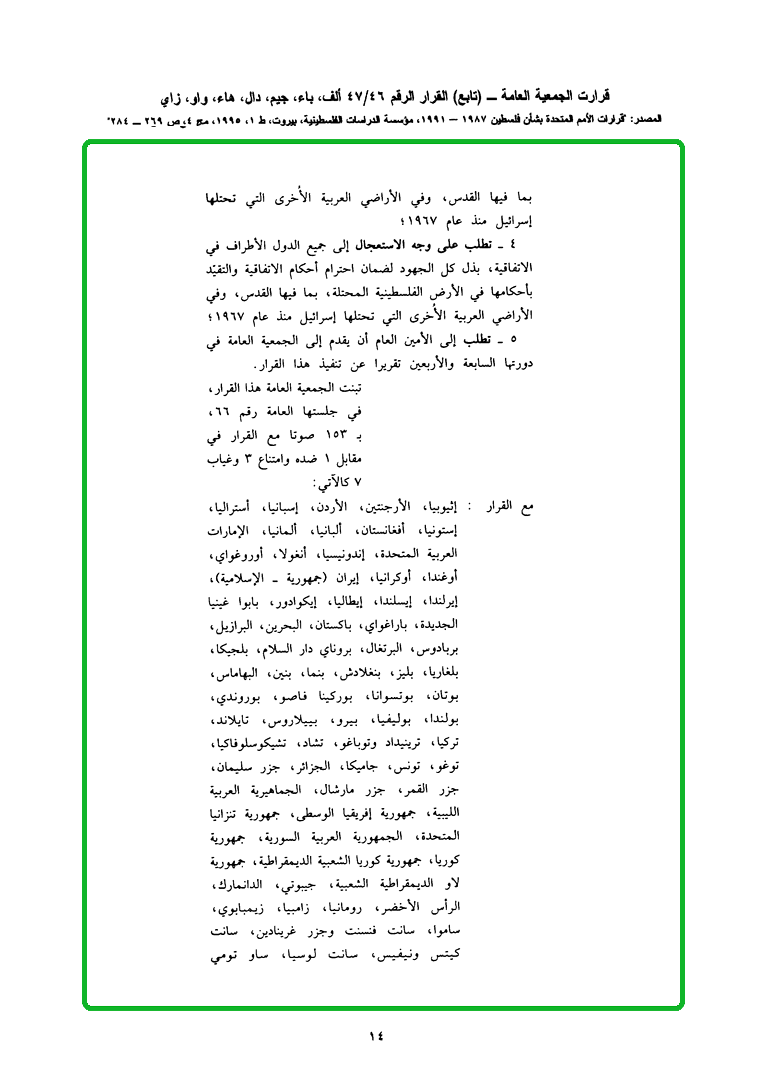 قرارت الجمعية العامة ــ (تابع) القرار الرقم ٤٧/٤٦ ألف، باء، جيم، دال، هاء، واو، زاي
المصدر: "قرارات الأمم المتحدة بشأن فلسطين ١٩٨٧ – ١٩٩١، مؤسسة الدراسات الفلسطينية، بيروت، ط ١، ١٩٩٥، مج ٤، ص ٢٦٩ – ٢٨٤"
بما فيها القدس، وفي الأراضي العربية الأُخرى التي تحتلها
إسرائيل منذ عام ١٩٦٧؛
٤ ـ تطلب على وجه الاستعجال إلى جميع الدول الأطراف في
الاتفاقية، بذل كل الجهود لضمان احترام أحكام الاتفاقية والتقيّد
بأحكامها في الأرض الفلسطينية المحتلة، بما فيها القدس، وفي
الأراضي العربية الأُخرى التي تحتلها إسرائيل منذ عام ١٩٦٧؛
٥ ـ تطلب إلى الأمين العام أن يقدم إلى الجمعية العامة في
دورتها السابعة والأربعين تقريرا عن تنفيذ هذا القرار.
تبنت الجمعية العامة هذا القرار،
في جلستها العامة رقم ٦٦،
بـ ١٥٣ صوتا مع القرار في
مقابل ١ ضده وامتناع ٣ وغياب
٧ كالآتي:
مع القرار : إثيوبيا، الأرجنتين، الأردن، إسبانيا، أستراليا،
إستونيا، أفغانستان، ألبانيا، ألمانيا، الإمارات
العربية المتحدة، إندونيسيا، أنغولا، أوروغواي،
أوغندا، أوكرانيا، إيران (جمهورية ـ الإسلامية)،
إيرلندا، إيسلندا، إيطاليا، إيكوادور، بابوا غينيا
الجديدة، باراغواي، باكستان، البحرين، البرازيل،
بربادوس، البرتغال، بروناي دار السلام، بلجيكا،
بلغاريا، بليز، بنغلادش، بنما، بنين، البهاماس،
بوتان، بوتسوانا، بوركينا فاصو، بوروندي،
بولندا، بوليفيا، بيرو، بييلاروس، تايلاند،
تركيا، ترينيداد وتوباغو، تشاد، تشيكوسلوفاكيا،
توغو، تونس، جاميكا، الجزائر، جزر سليمان،
جزر القمر، جزر مارشال، الجماهيرية العربية
الليبية، جمهورية إفريقيا الوسطى، جمهورية تنزانيا
المتحدة، الجمهورية العربية السورية، جمهورية
كوريا، جمهورية كوريا الشعبية الديمقراطية، جمهورية
لاو الديمقراطية الشعبية، جيبوتي، الدانمارك،
الرأس الأخضر، رومانيا، زامبيا، زيمبابوي،
ساموا، سانت فنسنت وجزر غرينادين، سانت
كيتس ونيفيس، سانت لوسيا، ساو تومي
١٤